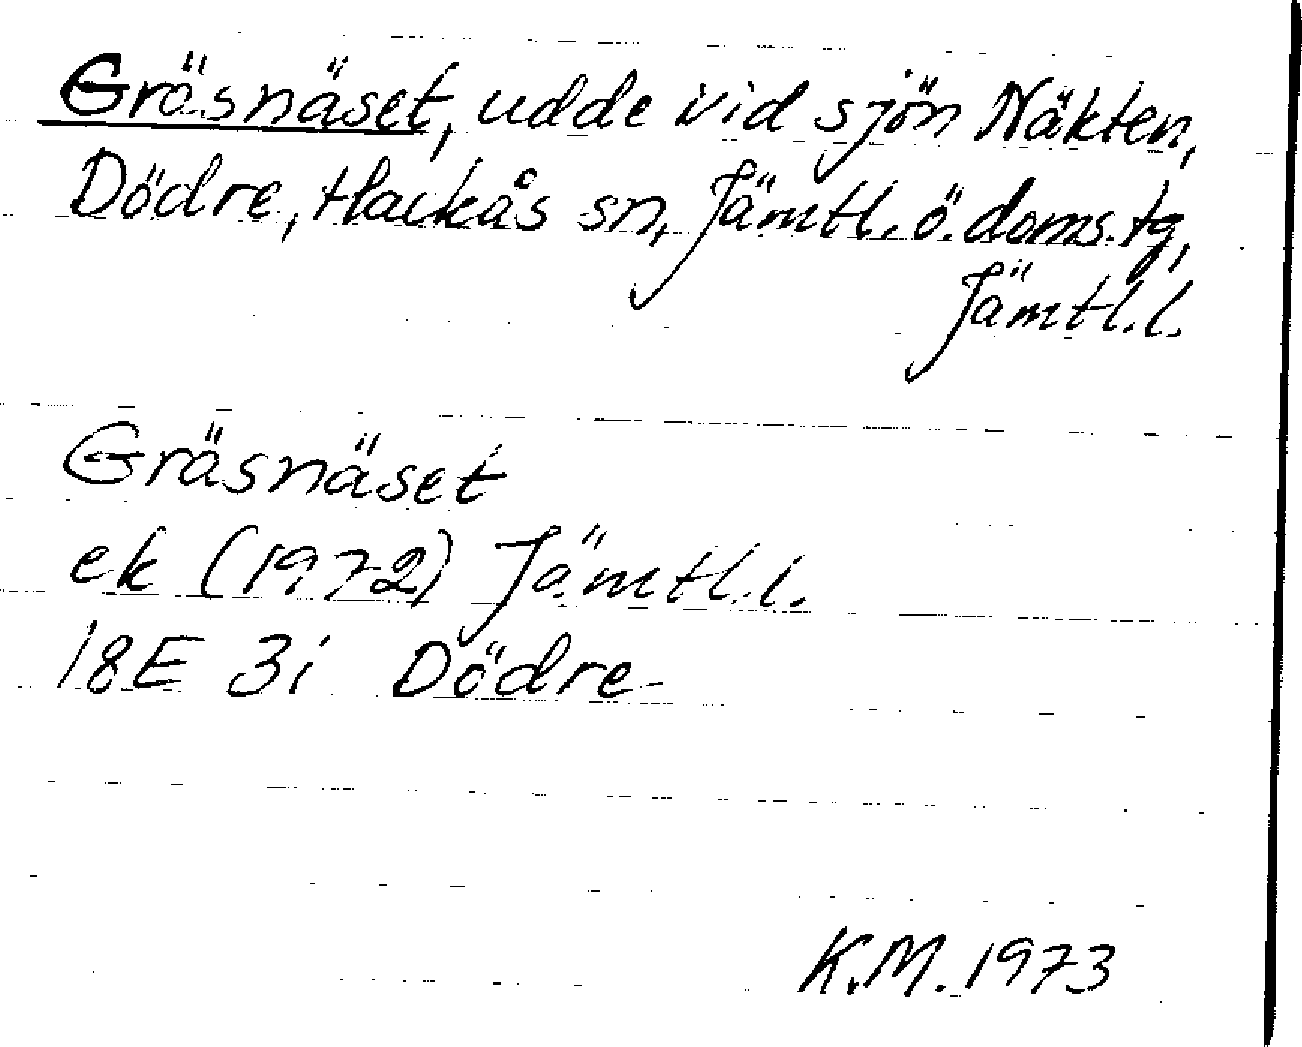 Gräsnäset, udde vid sjön Näkten,
Dödre, Hackås sn, Jämtl. ö. doms. tg,
Jämtl.l.
Gräsnäset
ek (1972) Jämtl.l.
18E 3i Dödre
K.M. 1973